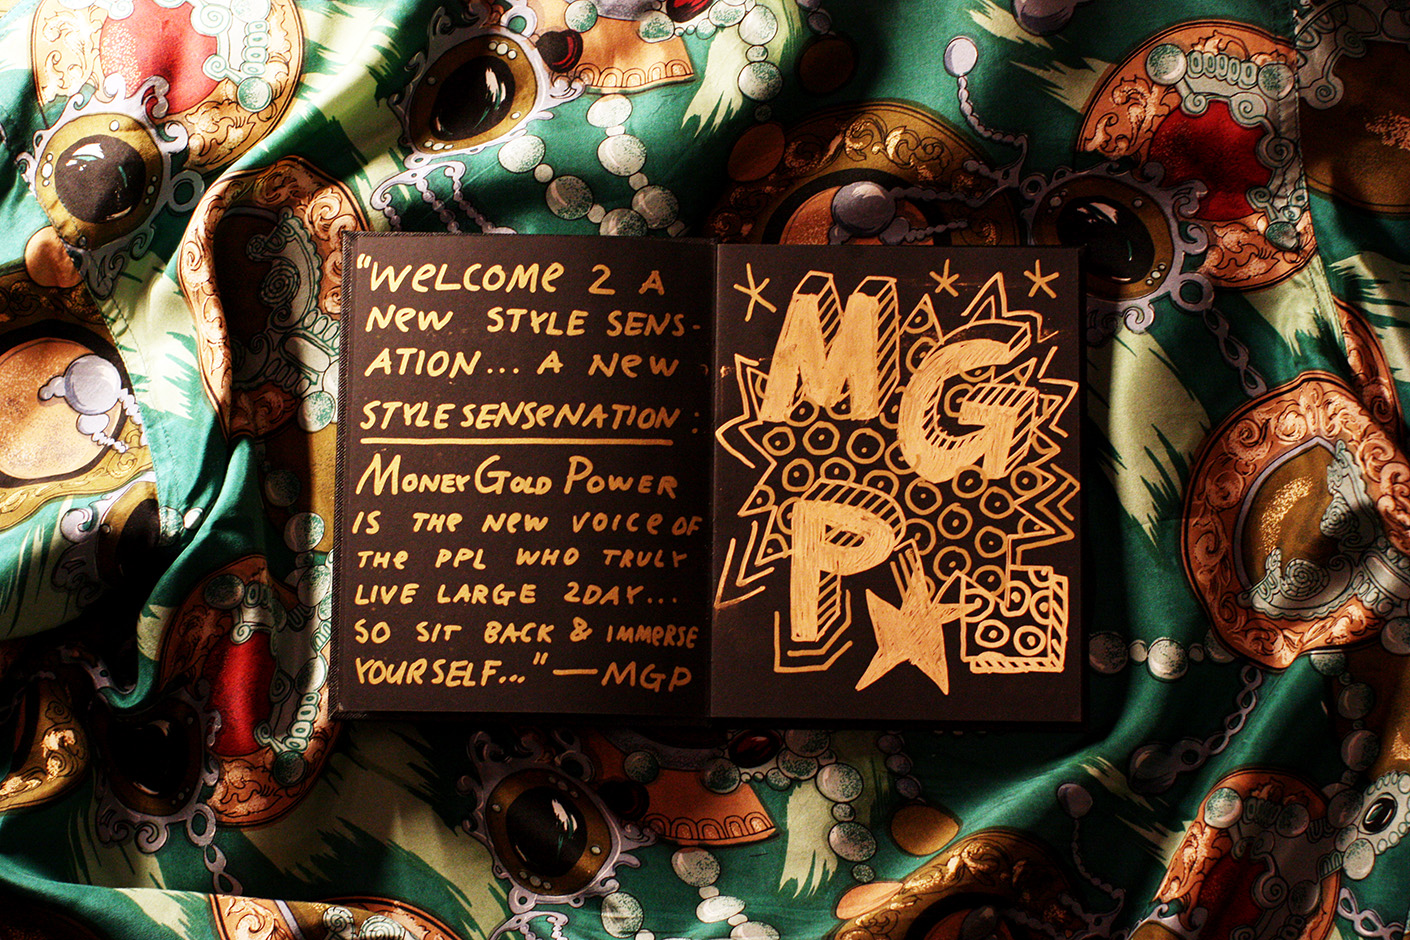 "WELCOME 2 A
NEW STYLE SENS-
ATION... A NEW
STYLE SENSENATION:
MONEY GOLD POWER
IS THE NEW VOICE OF
THE PPL WHO TRULY
LIVE LARGE 2DAY...
SO SIT BACK & IMMERSE
YOURSELF..." —MGP
M
G
P